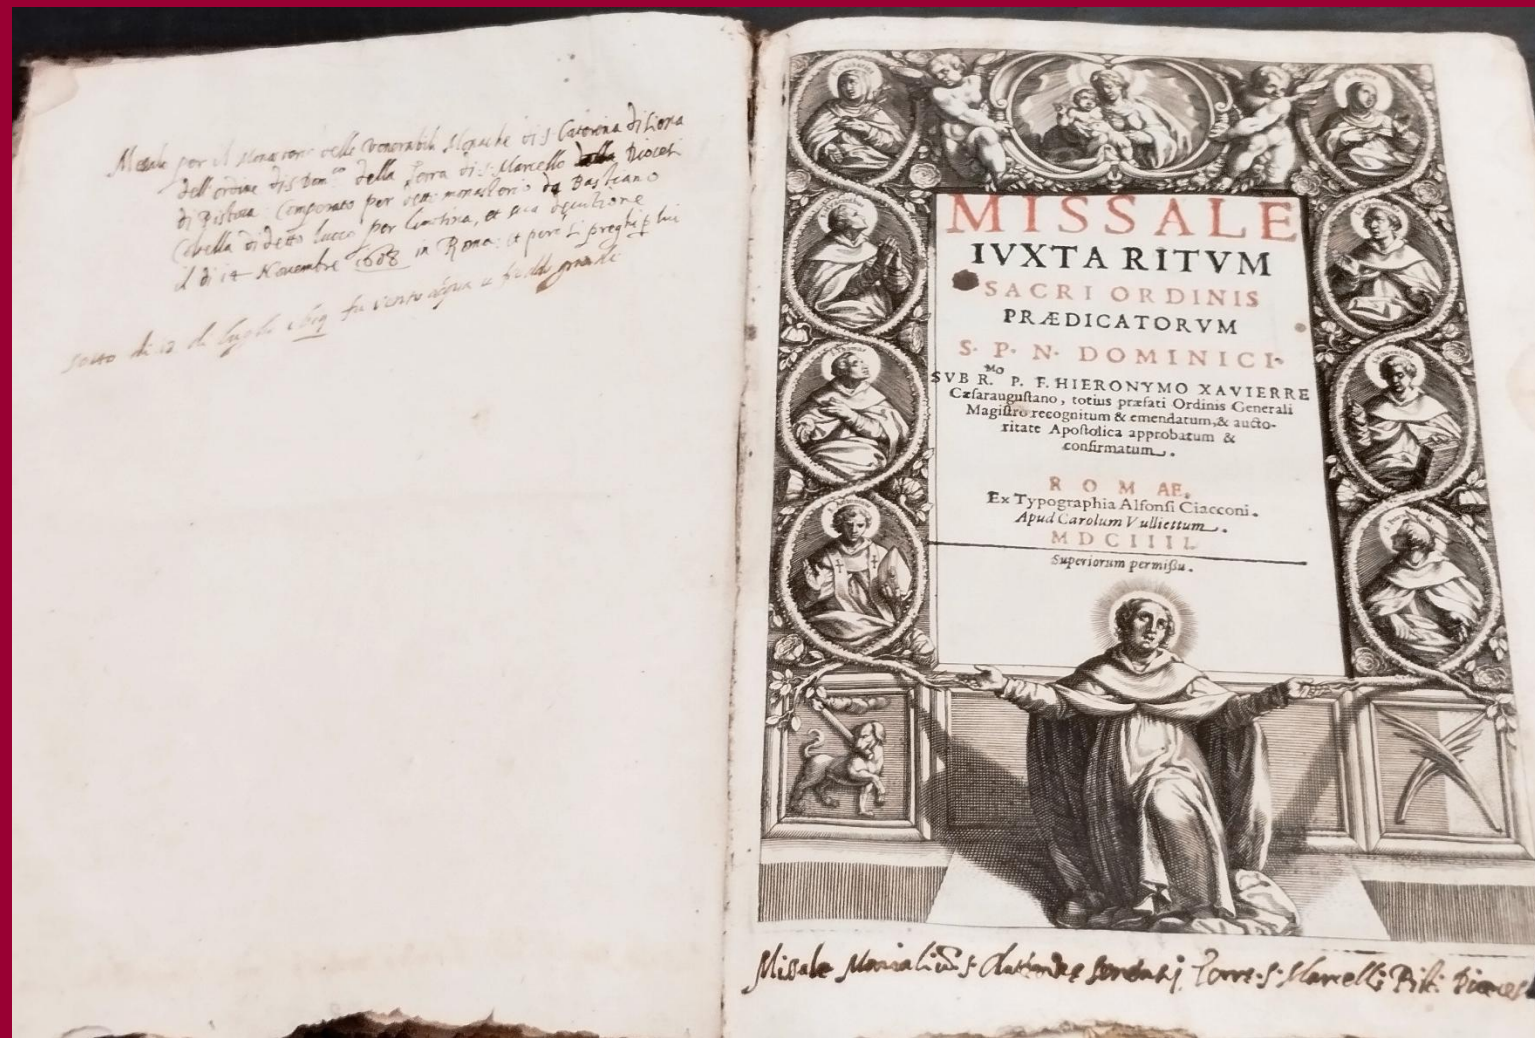 Messale per il Monasterio delle Venerabili Monache di S. Caterina di Siena
dell'ordine di S. Dom.co della Terra di S. Marcello Diocesi
di Pistoia Comperato per detto monasterio da Bastiano
Cibella di detto luoco per limosina, et sua devotione
il di 14 Novembre 1608 in Roma: et però si preghi p lui
di 13 di luglio 1619 fu vento acqua e freddo grande
MISSALE
IVXTA RITVM
SACRI ORDINIS
PRÆDICATORVM
S. P. N. DOMINICI.
SVB R.MO P. F. HIERONYMO XAVIERRE
Cæsaraugustano, totius præfati Ordinis Generali
Magistro recognitum & emendatum, & aucto-
ritate Apostolica approbatum &
confirmatum.
ROMAE.
Ex Typographia Alfonsi Ciacconi.
Apud Carolum Vulliettum.
MDCIIII.
Superiorum permissu.
Missale Monialiũ S. Terre S. Marcelli Pist. Dioces